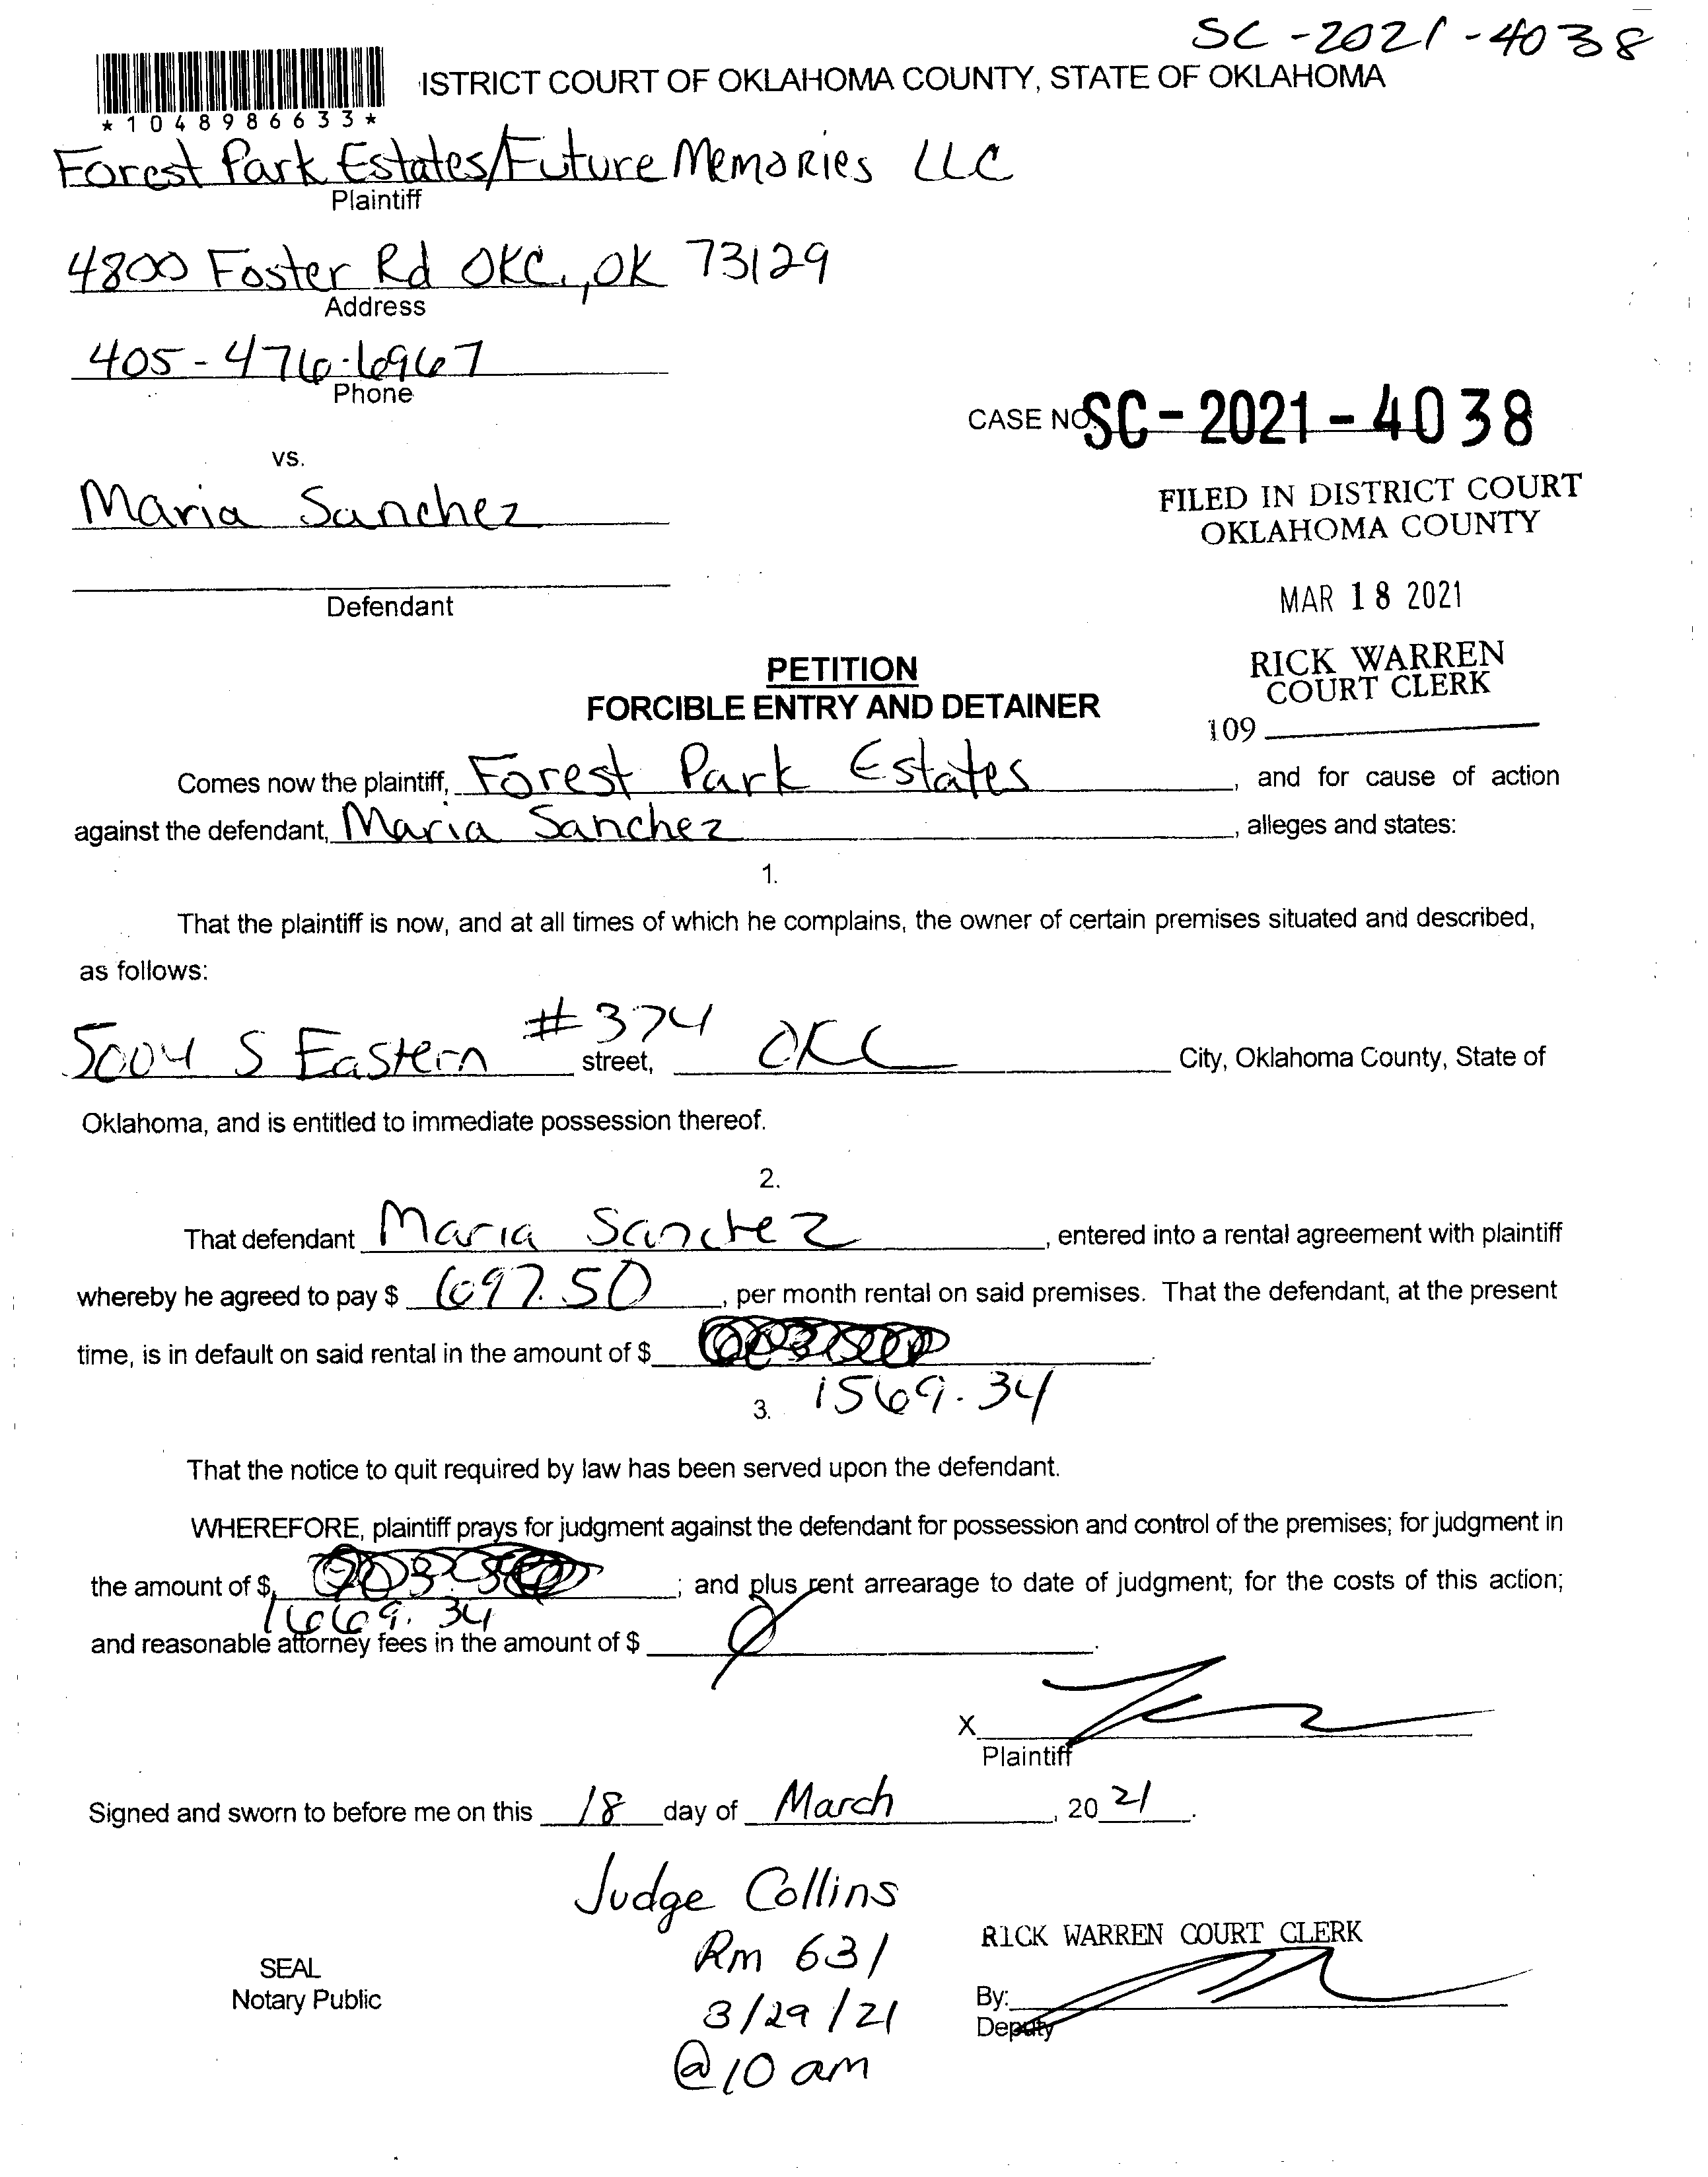 SC-2021-4038
ISTRICT COURT OF OKLAHOMA COUNTY, STATE OF OKLAHOMA
*1048986633*
Forest Park Estates/Future Memories LLC
Plaintiff
4800 Foster Rd OKC., OK 73129
Address
405-476-6967
Phone
CASE NO. SC-2021-4038
vs.
Maria Sanchez
FILED IN DISTRICT COURT
OKLAHOMA COUNTY
Defendant
MAR 18 2021
RICK WARREN
COURT CLERK
109
PETITION
FORCIBLE ENTRY AND DETAINER
Comes now the plaintiff, Forest Park Estates, and for cause of action
against the defendant, Maria Sanchez, alleges and states:
1.
That the plaintiff is now, and at all times of which he complains, the owner of certain premises situated and described,
as follows:
5004 S Eastern #374 street, OKC City, Oklahoma County, State of
Oklahoma, and is entitled to immediate possession thereof.
2.
That defendant Maria Sanchez, entered into a rental agreement with plaintiff
whereby he agreed to pay $ 697.50, per month rental on said premises. That the defendant, at the present
time, is in default on said rental in the amount of $ .
1569.34
3.
That the notice to quit required by law has been served upon the defendant.
WHEREFORE, plaintiff prays for judgment against the defendant for possession and control of the premises; for judgment in
the amount of $ ; and plus rent arrearage to date of judgment; for the costs of this action;
1669.34
and reasonable attorney fees in the amount of $ 0.
X
Plaintiff
Signed and sworn to before me on this 18 day of March, 20 21.
Judge Collins
Rm 631
3/29/21
@10 am
SEAL
Notary Public
RICK WARREN COURT CLERK
By:
Deputy